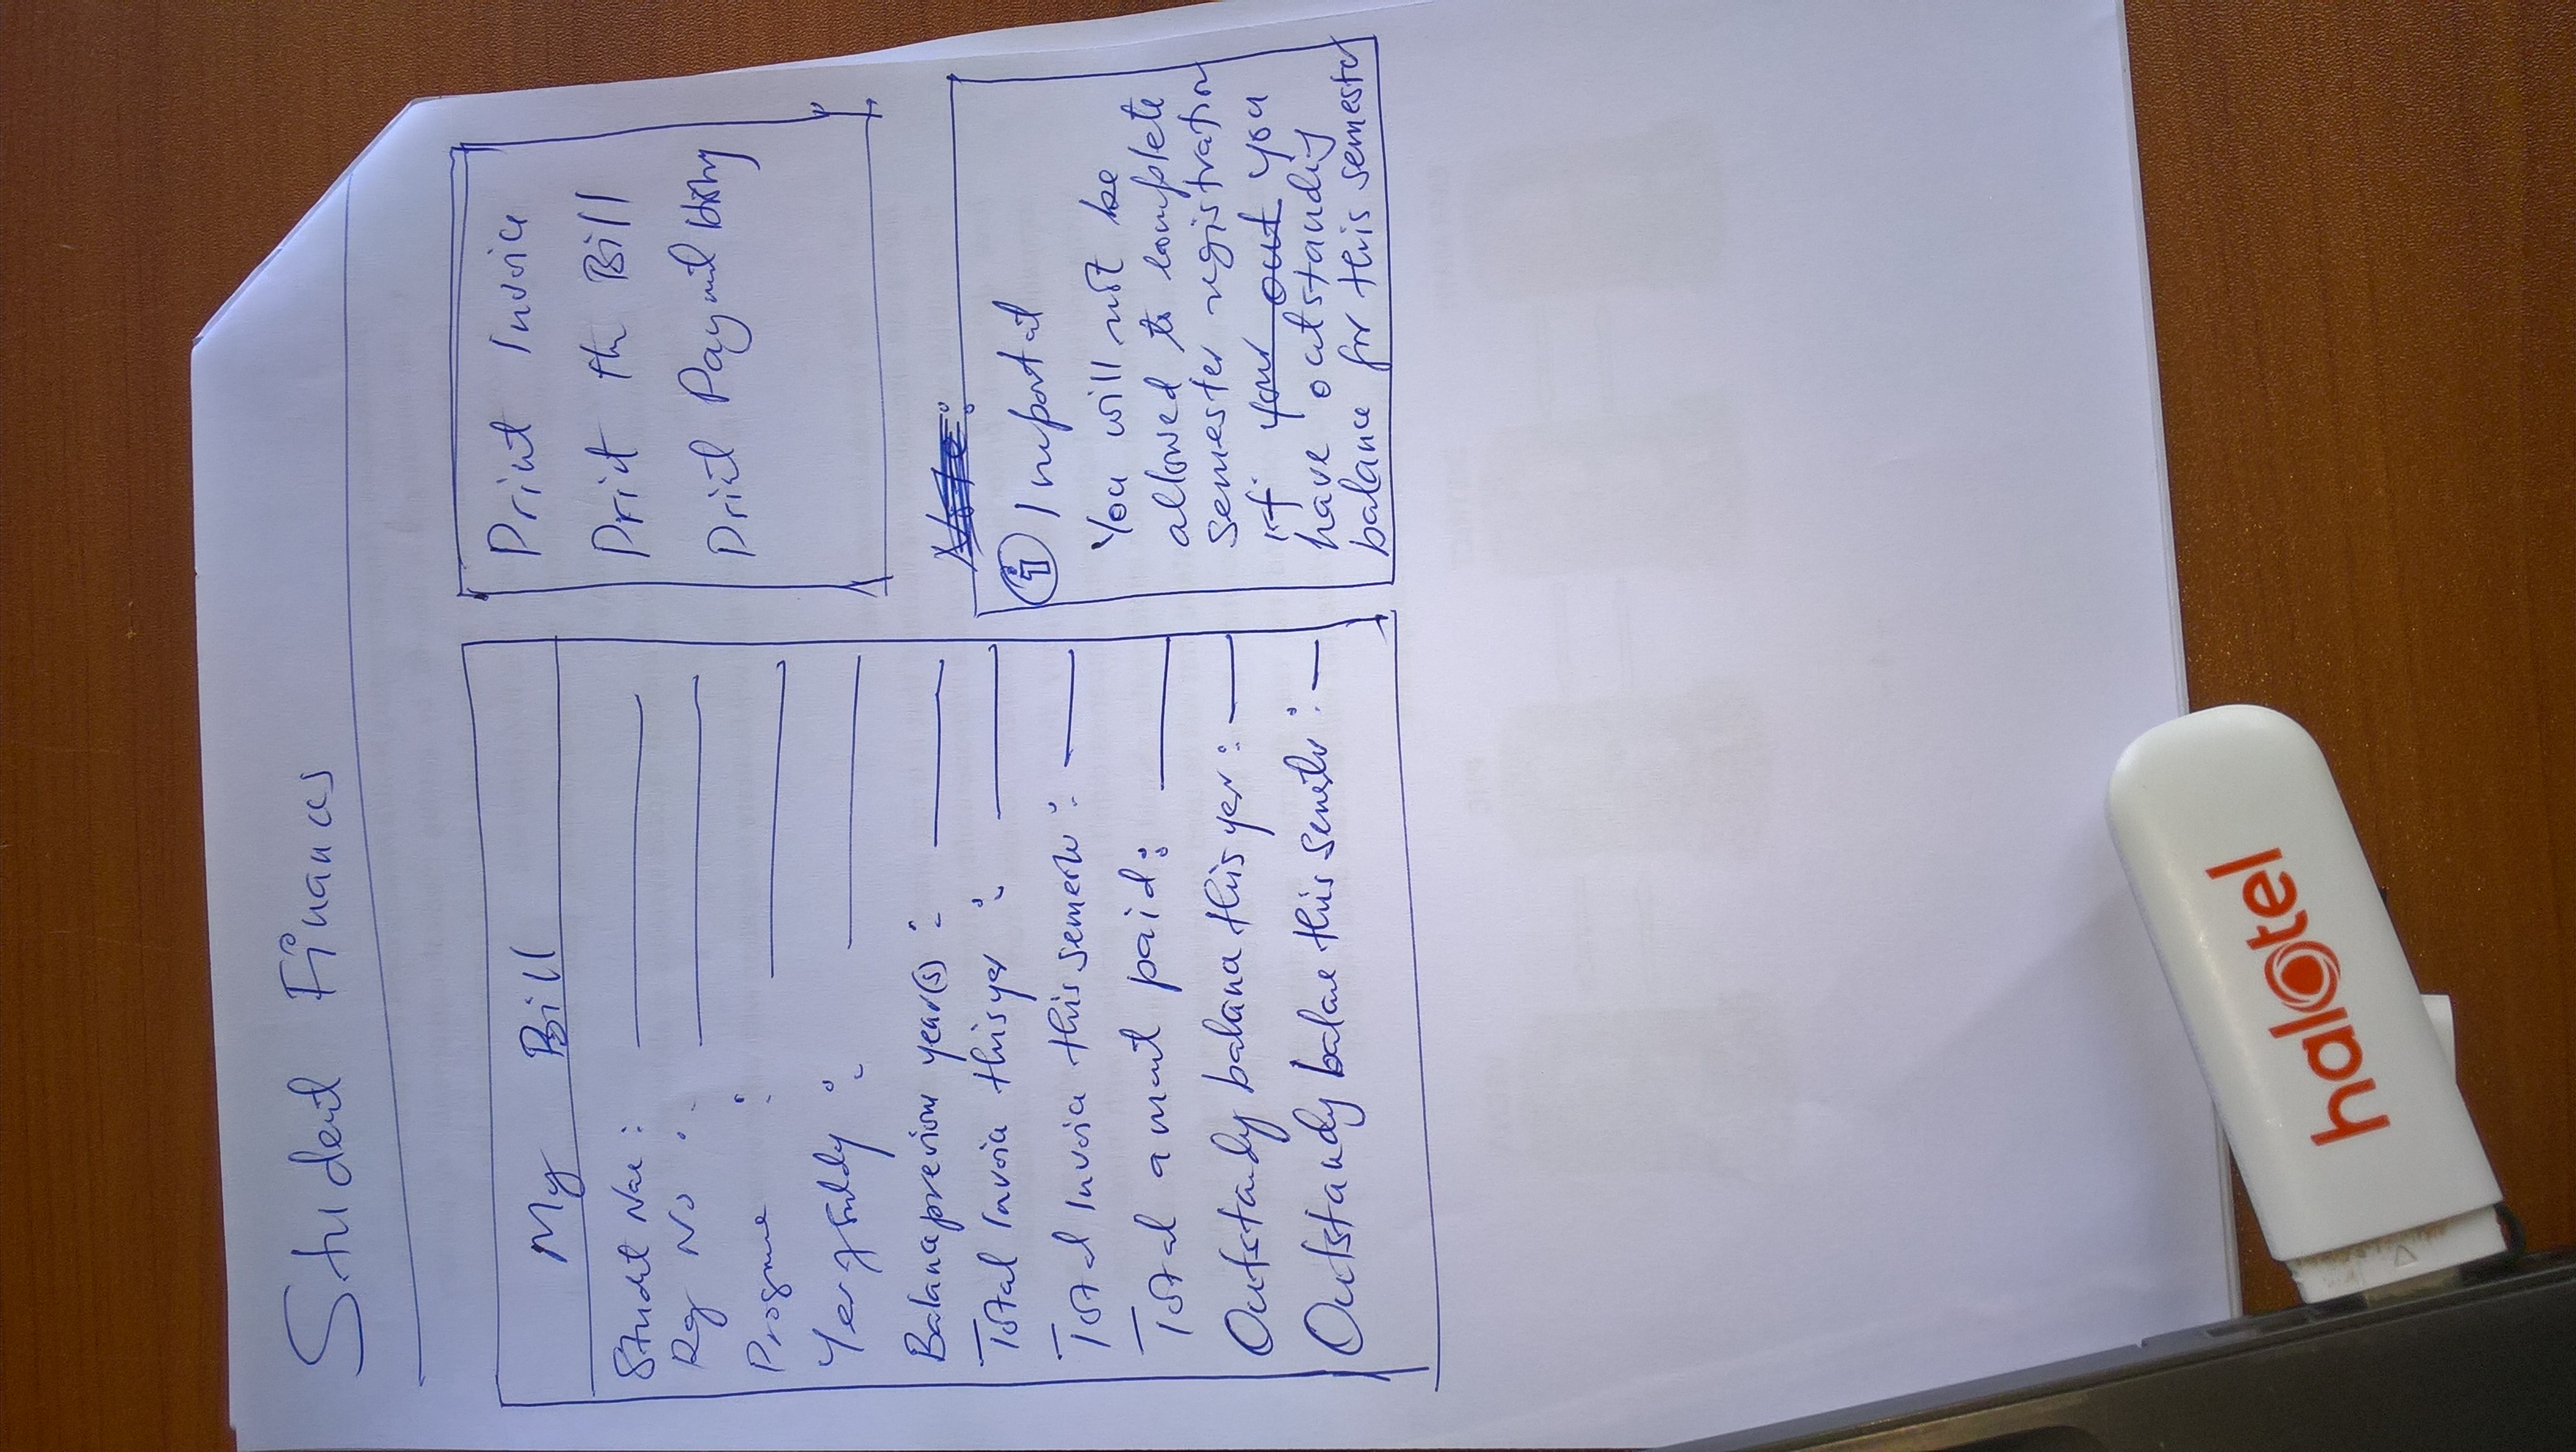 Student Finances
My Bill
Studet Nae :
Reg No :
Progme :
Yer of Suddy :
Balance previous year(s) :
Total Invoice this yer :
Total Invoice this semester :
Total amount paid :
Outstandy balance this yer :
Outstandy balane this semester :
Print Invoice
Print the Bill
Print Paymnt History
Note :
i Importat
You will not be
allowed to complete
semester registration
if your out you
have outstandig
balance for this semester
halotel